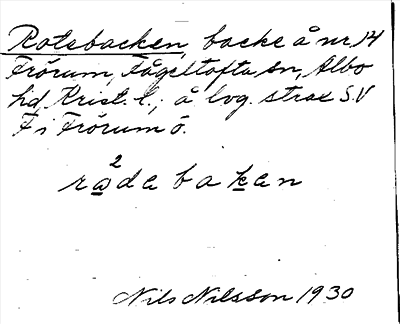 Rotsbacken, backe å nr 14
Frörum, Fågeltofta sn, Albo
hd, Krist. l.; å låg. strax S.V
F i Frörum ö.
2
radabakan
Nils Nilsson 1930